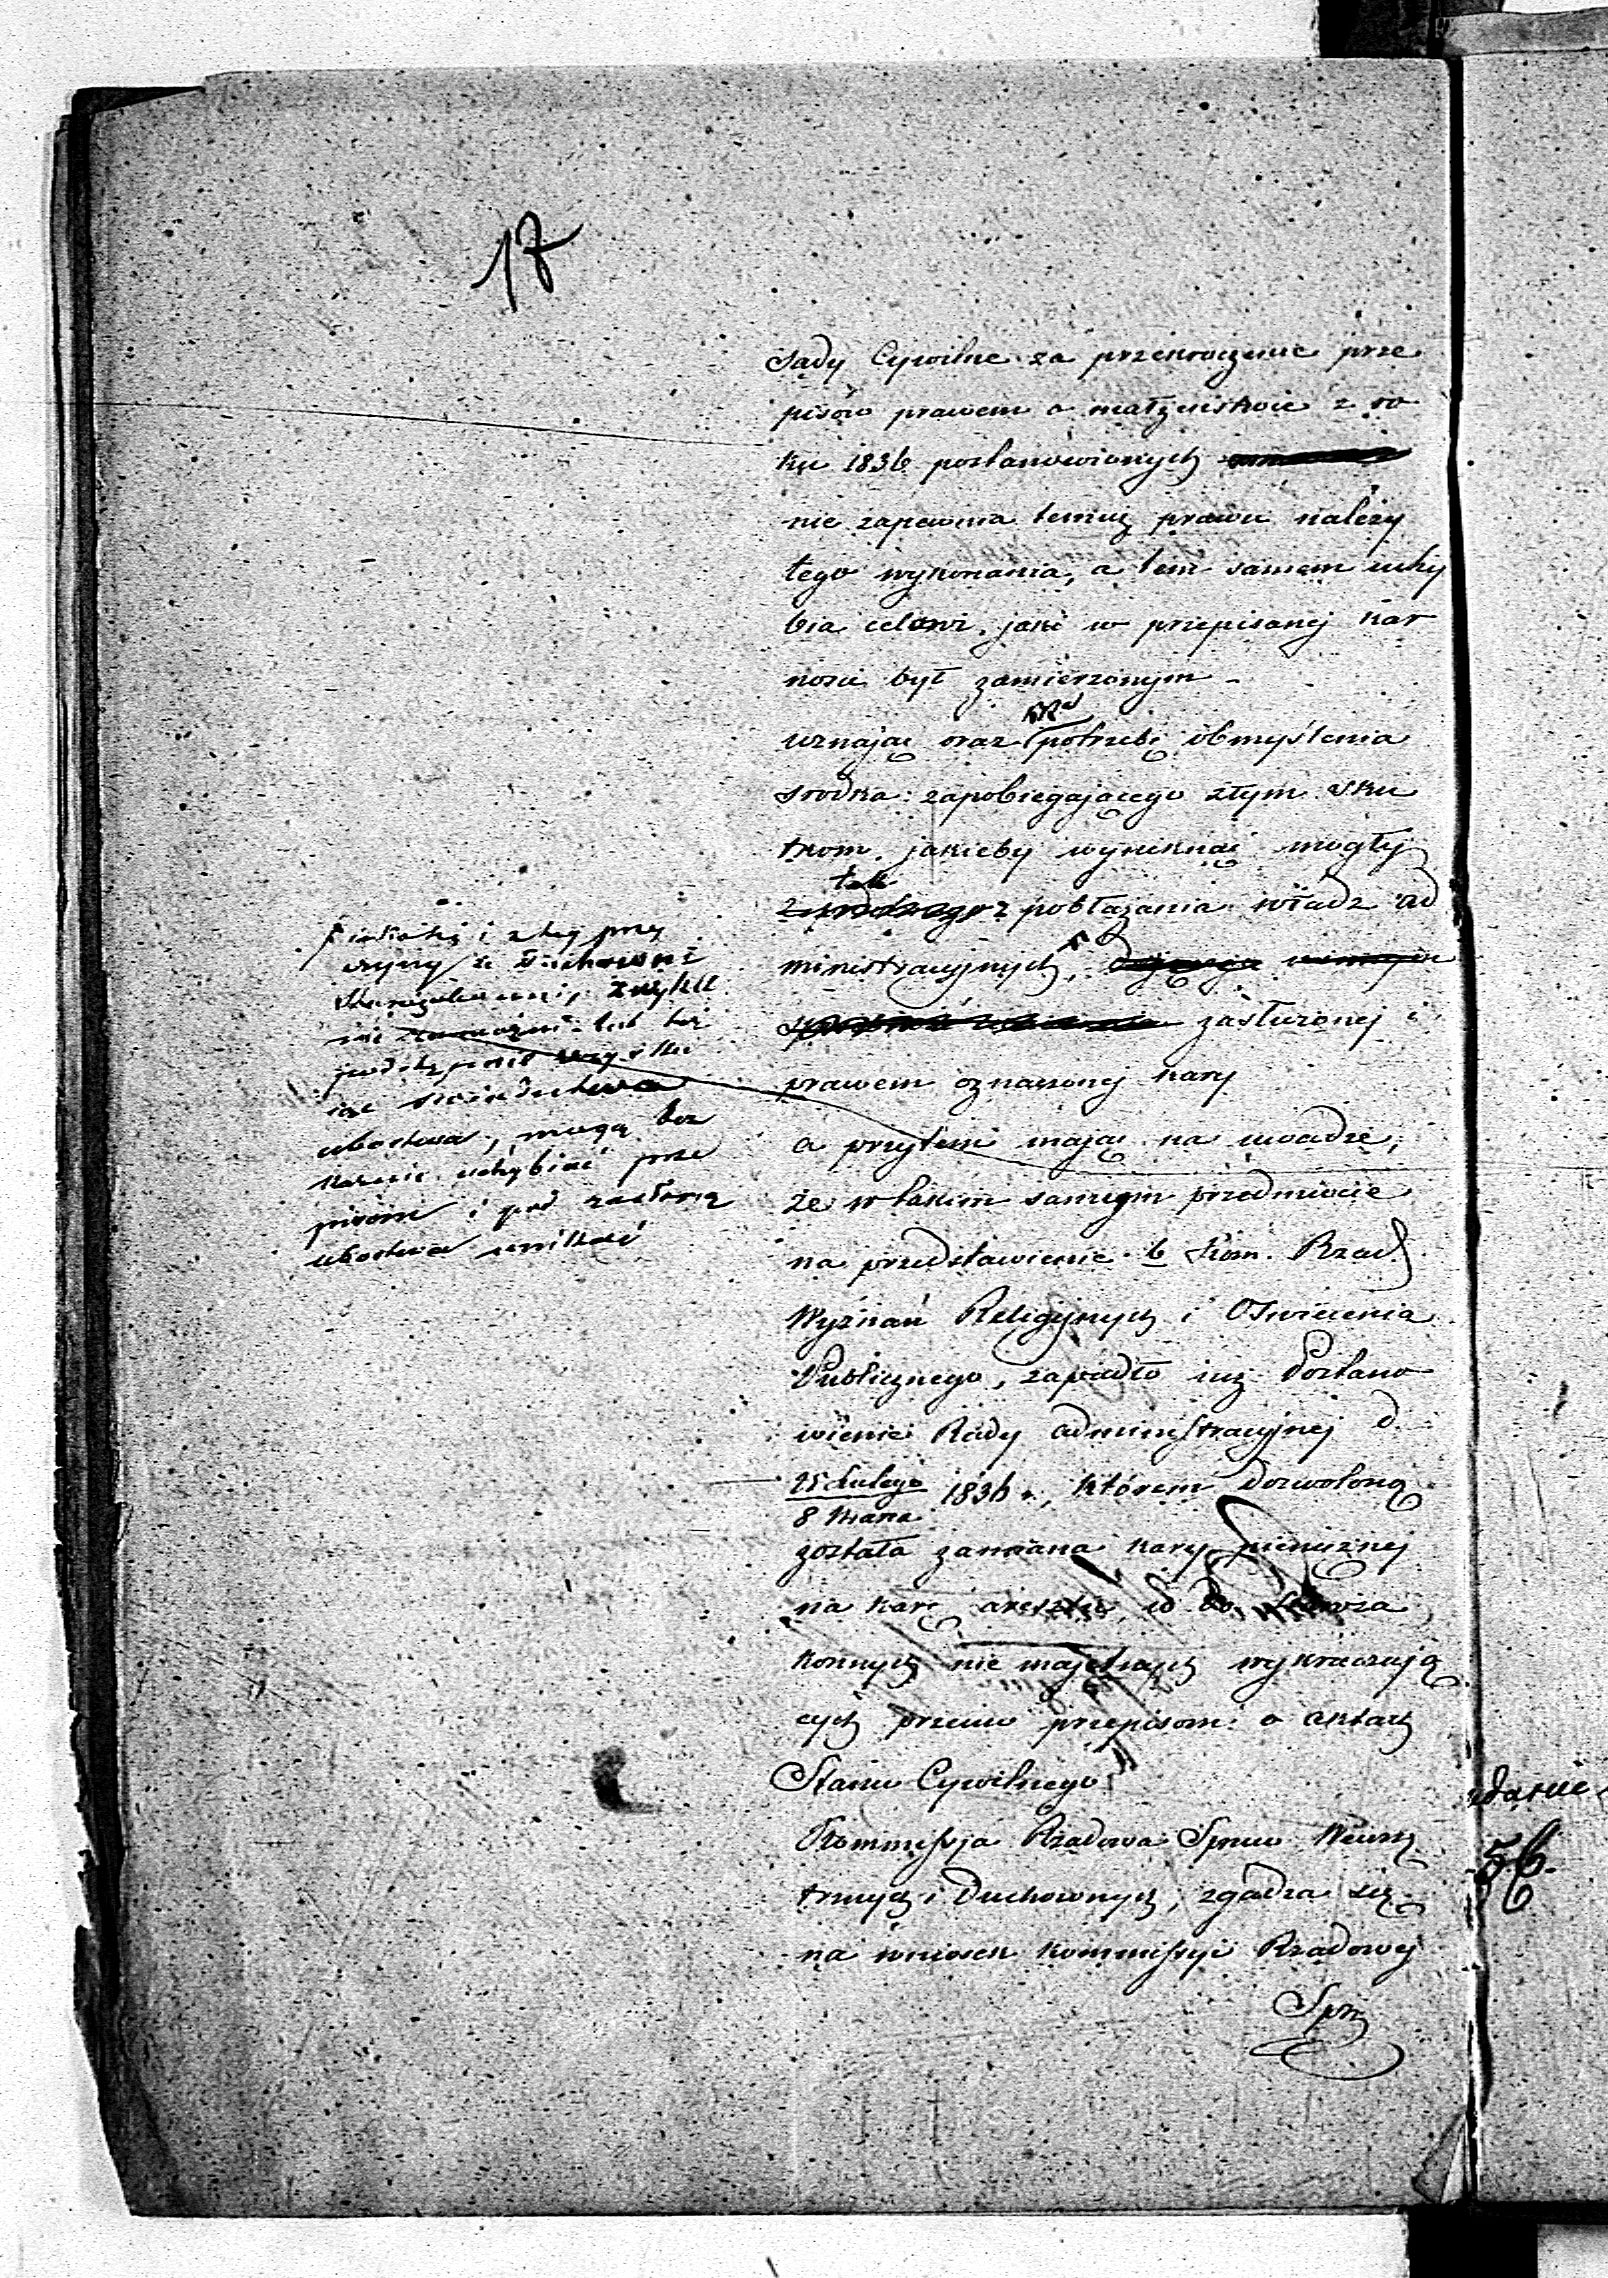 17
Sądy Cywilne za przekroczenie prze
pisów prawem o małżeństwie z ro
ku 1836 postanowionych
nie zapewnia temuż prawu należy
tego wykonania, a tem samem uchy
bia celowi, jaki w przepisanej kar
ności był zamierzonym
uznając oraz potrzebę obmyślenia
srodka zapobiegającego złym sku
tkom, jakieby wyniknąć mogły
tak
z pobłażania władz ad
ministracyjnych,
zasłużonej i
prawem oznaczonej kary
a przytem mając na uwadze,
że w takim samym przedmiocie
na przedstawienie b. Kom. Rząd.
Wyznań Religijnych i Oświecenia
Publicznego, zapadło iuż Postano
wienie Rady administracyjnej d.
25 Lutego
8 Marca
1836 r., którem dozwoloną
została zamiana kary pieniężnej
na karę aresztu,
konnych nie majętnych wykraczają
cych przeciw przepisom o aktach
Stanu Cywilnego
Kommissja Rządowa Spraw Wewnę
trznych i Duchownych, zgadza się
na wniosek Kommissyi Rządowej
Spr
i z tej przy
czyny że Duchowni
zwykle
nie lub też
wszystkie
świadectwa
ubostwa, mogą bez
karnie uchybiać prze
pisom i pod zasłoną
ubostwa unikać
56.